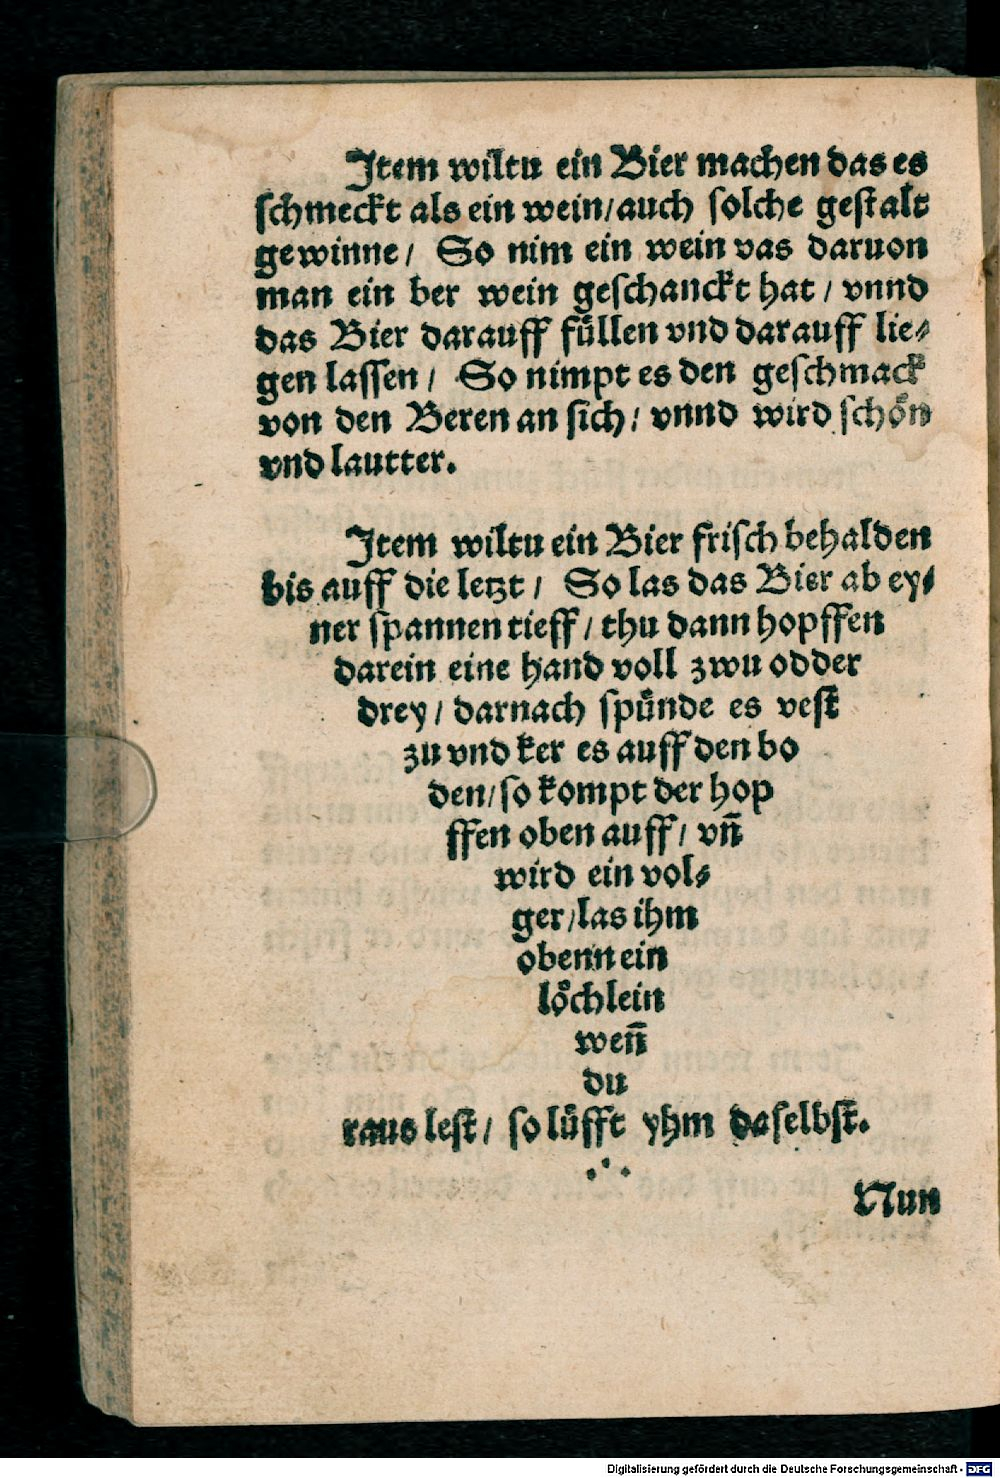 Item wiltu ein Bier machen das es
ſchmeckt als ein wein/auch ſolche geſtalt
gewinne/ So nim ein wein vas daruon
man ein ber wein geſchanckt hat/ vnnd
das Bier darauff fuͤllen vnd darauff lie⸗
gen laſſen/ So nimpt es den geſchmack
von den Beren an ſich/ vnnd wird ſchoͤn
vnd lautter.
Item wiltu ein Bier friſch behalden
bis auff die letzt/ So las das Bier ab ey⸗
ner ſpannen tieff/ thu dann hopffen
darein eine hand voll zwu odder
drey/ darnach ſpuͤnde es veſt
zu vnd ker es auff den bo
den/ſo kompt der hop
ffen oben auff/ vn̄
wird ein vol⸗
ger/las ihm
obenn ein
loͤchlein
wen̄
du
raus leſt/ ſo luͤfft yhm daſelbſt.
Nun
Digitalisierung gefördert durch die Deutsche Forschungsgemeinschaft - DFG